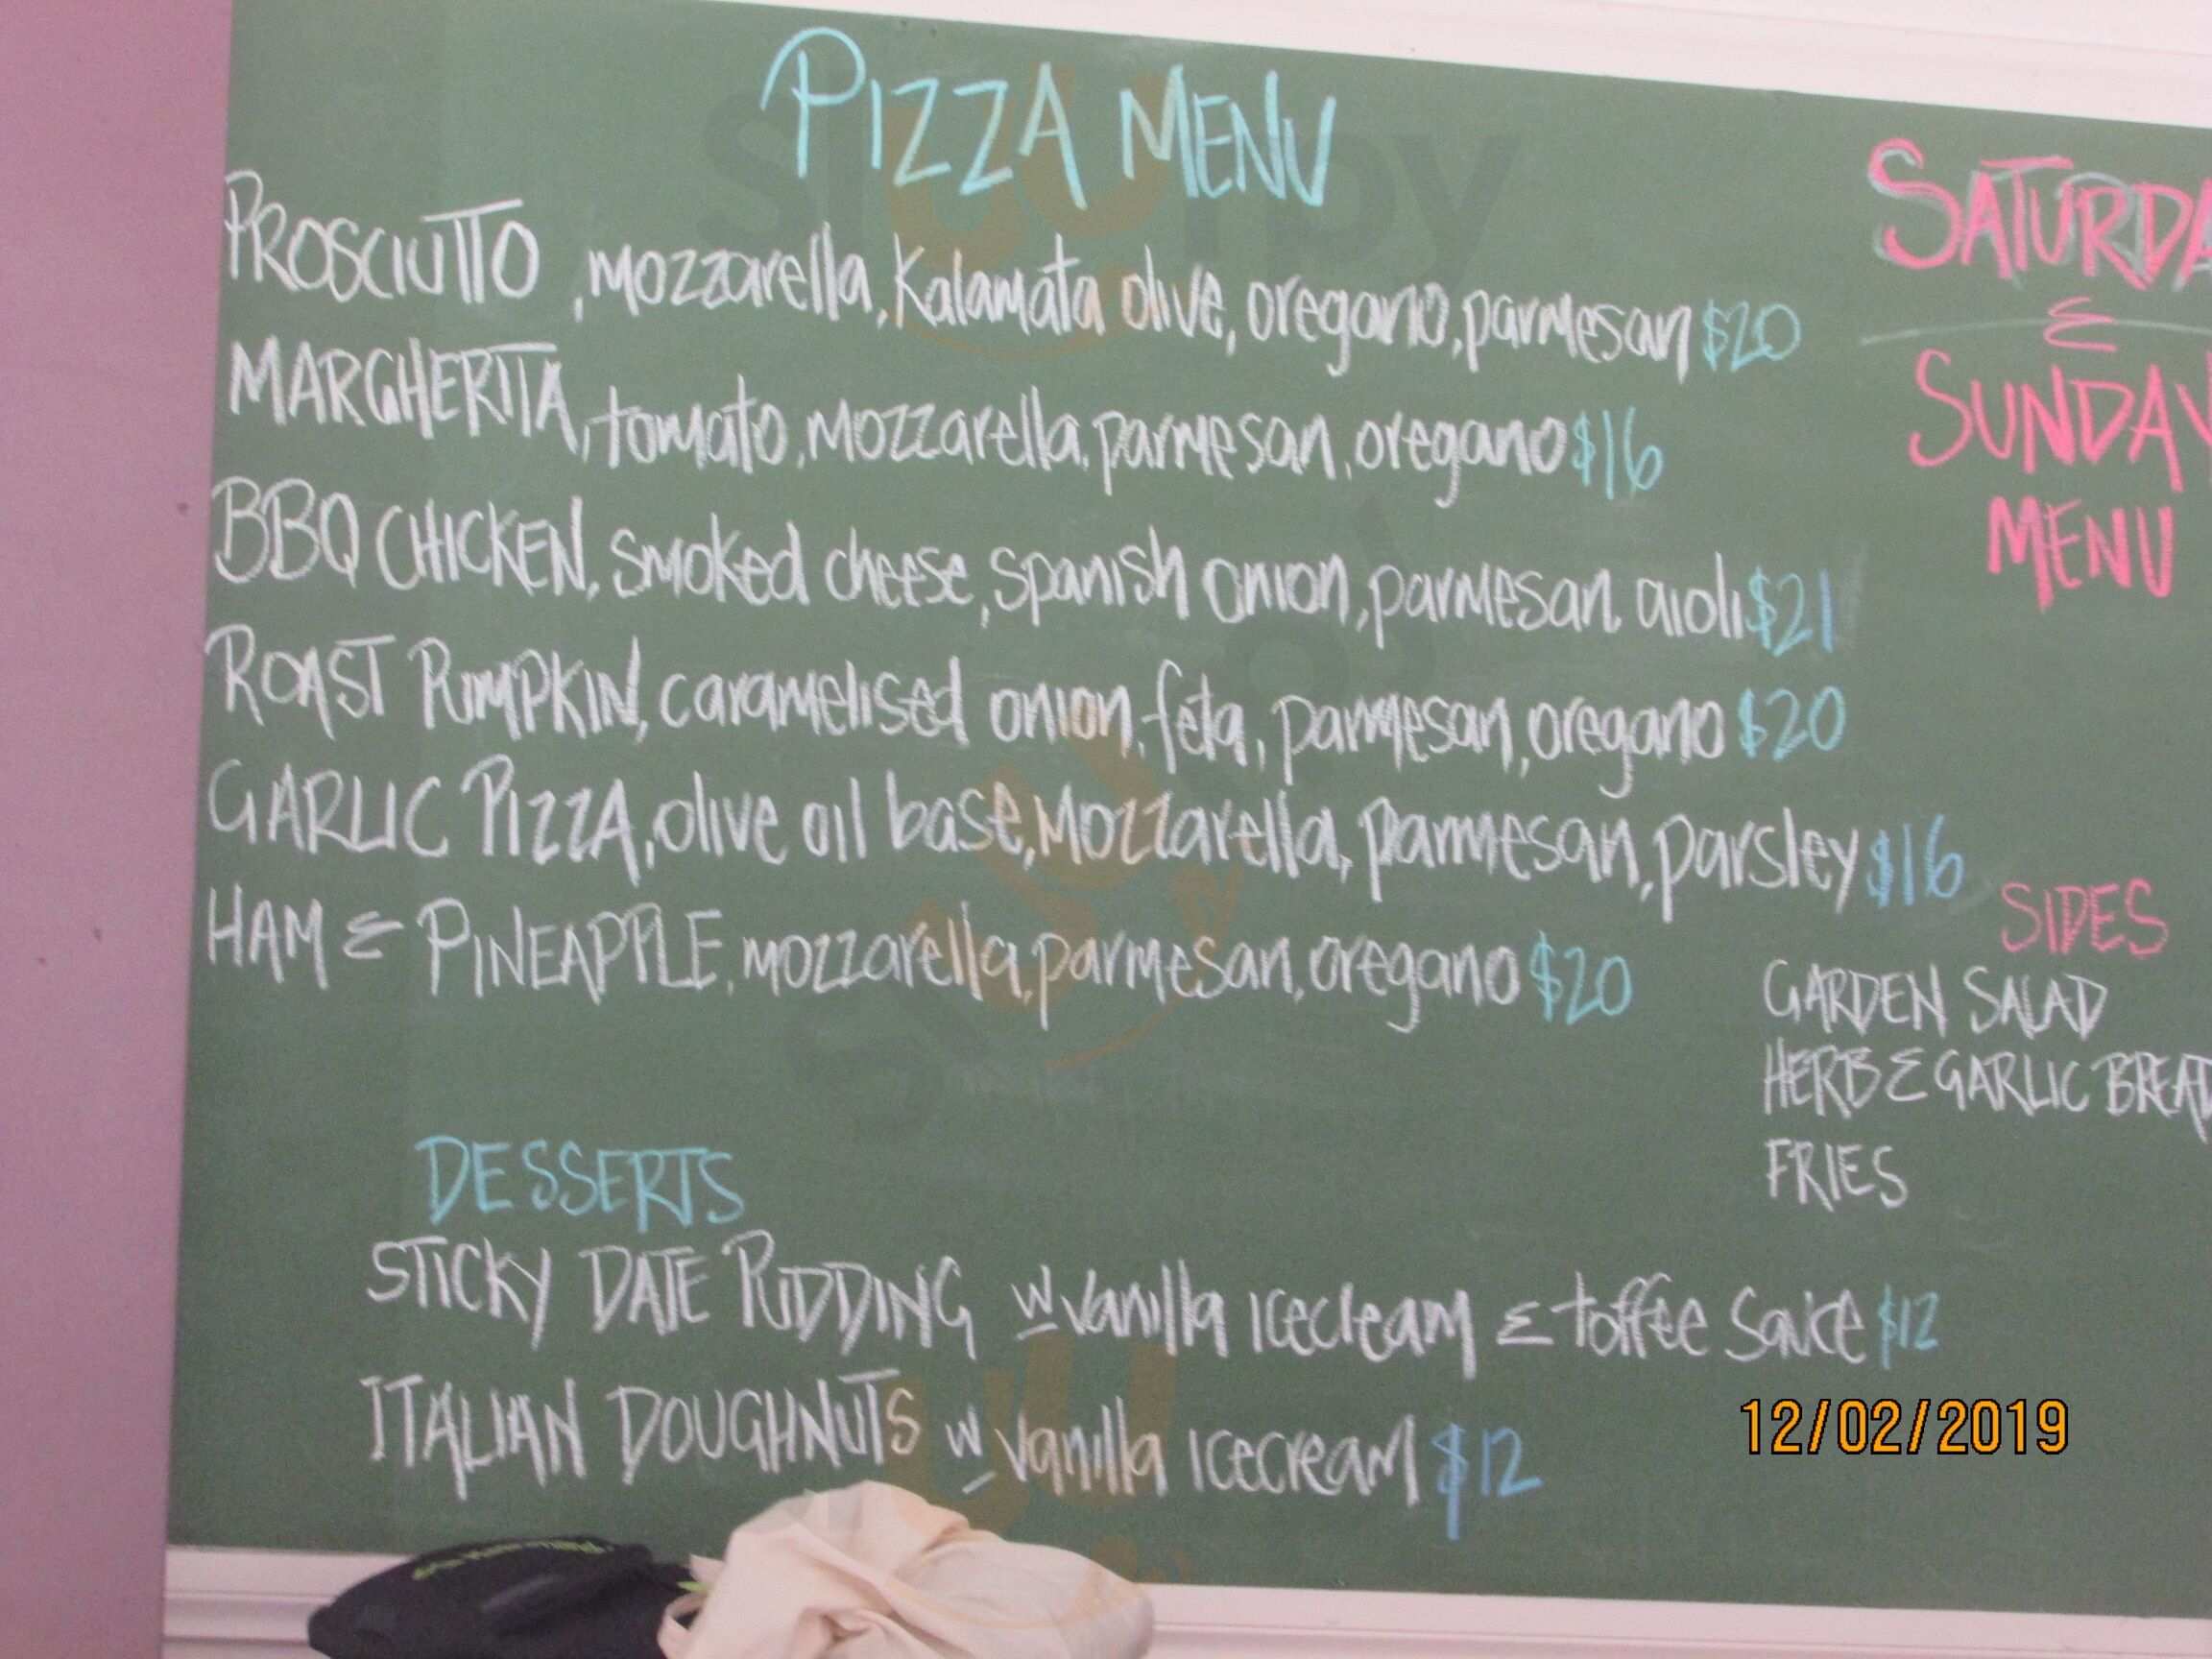 PIZZA MENU
PROSCIUTTO, mozzarella, Kalamata olive, oregano, parmesan $20
MARGHERITA, tomato, mozzarella, parmesan, oregano $16
BBQ CHICKEN, smoked cheese, spanish onion, parmesan, aioli $21
ROAST PUMPKIN, caramelised onion, feta, parmesan, oregano $20
GARLIC PIZZA, olive oil base, mozzarella, parmesan, parsley $16
HAM & PINEAPPLE, mozzarella, parmesan, oregano $20
SATURDA
&
SUNDAY
MENU
SIDES
GARDEN SALAD
HERB & GARLIC BREAD
FRIES
DESSERTS
STICKY DATE PUDDING w vanilla icecream & toffee sauce $12
ITALIAN DOUGHNUTS w vanilla icecream $12
12/02/2019